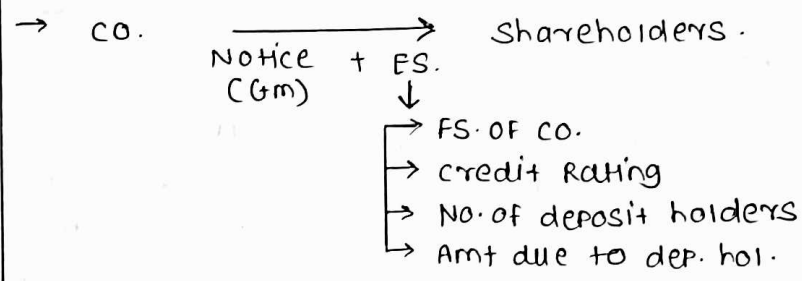 → CO. → Shareholders.
Notice + ES.
(Gm) ↓
→ FS. OF CO.
→ credit Rating
→ No. of deposit holders
→ Amt due to dep. hol.